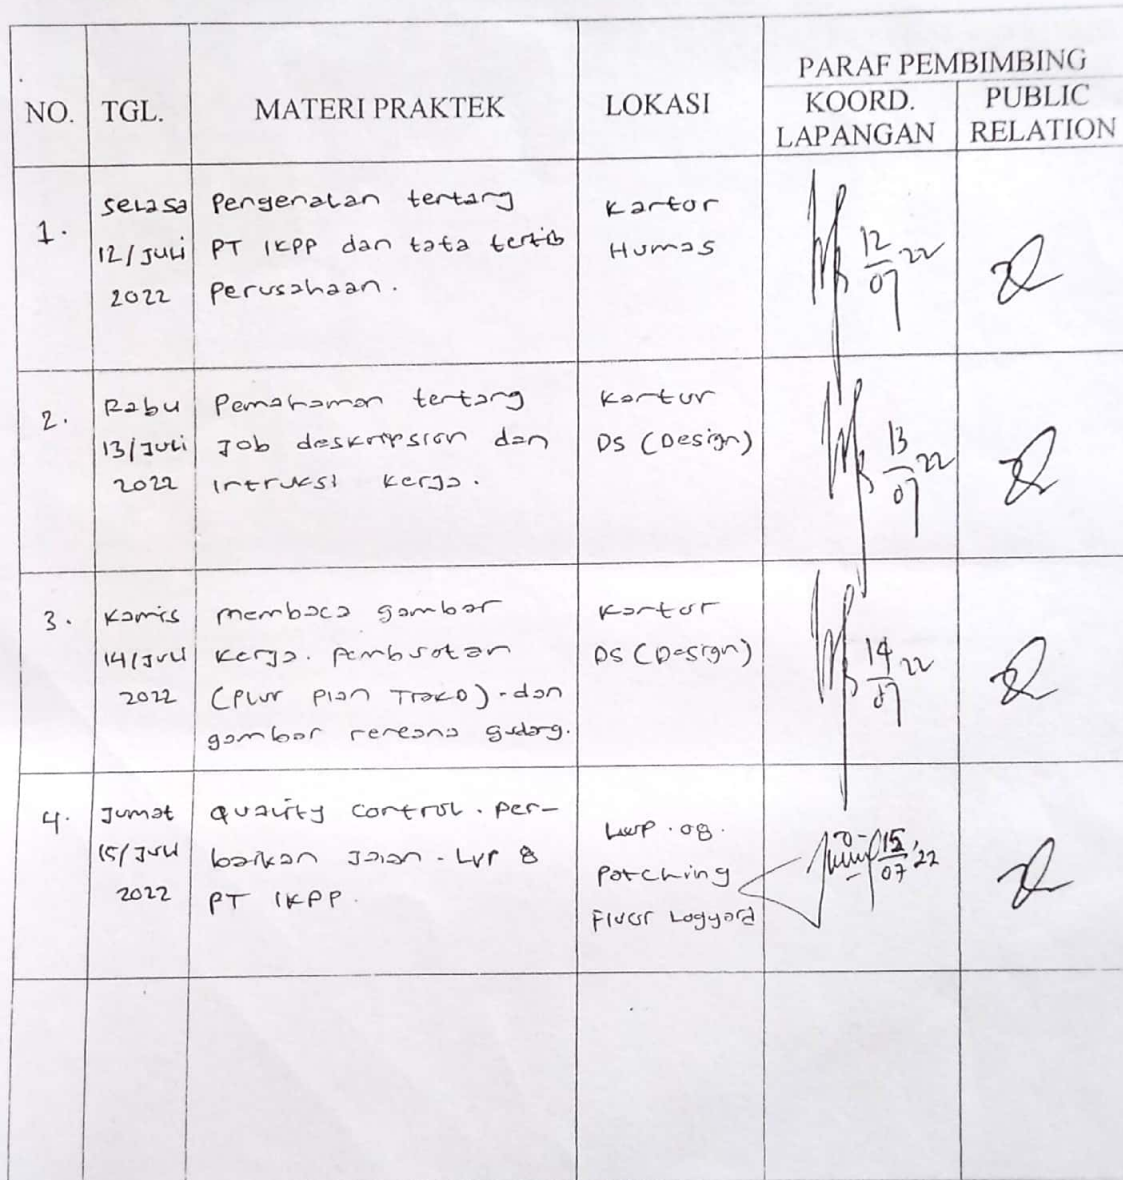 PARAF PEMBIMBING
NO. TGL. MATERI PRAKTEK LOKASI KOORD. LAPANGAN PUBLIC RELATION
1.
Selasa
12/Juli
2022
Pengenalan tentang
PT IKPP dan tata tertib
Perusahaan.
Kantor
Humas
12/07 22
2.
Rabu
13/Juli
2022
Pemahaman tentang
Job deskripsion dan
intruksi kerja.
Kantor
DS (Design)
13/07 22
3.
Kamis
14/Juli
2022
membaca gambar
kerja. Pembuatan
(Plan
dan
gambar rencana gudang.
Kantor
DS (Design)
14/07 22
4.
Jumat
15/Juli
2022
Quality Control. Per-
baikan Jalan -
PT IKPP.
Patching
Logyard
15/07 '22